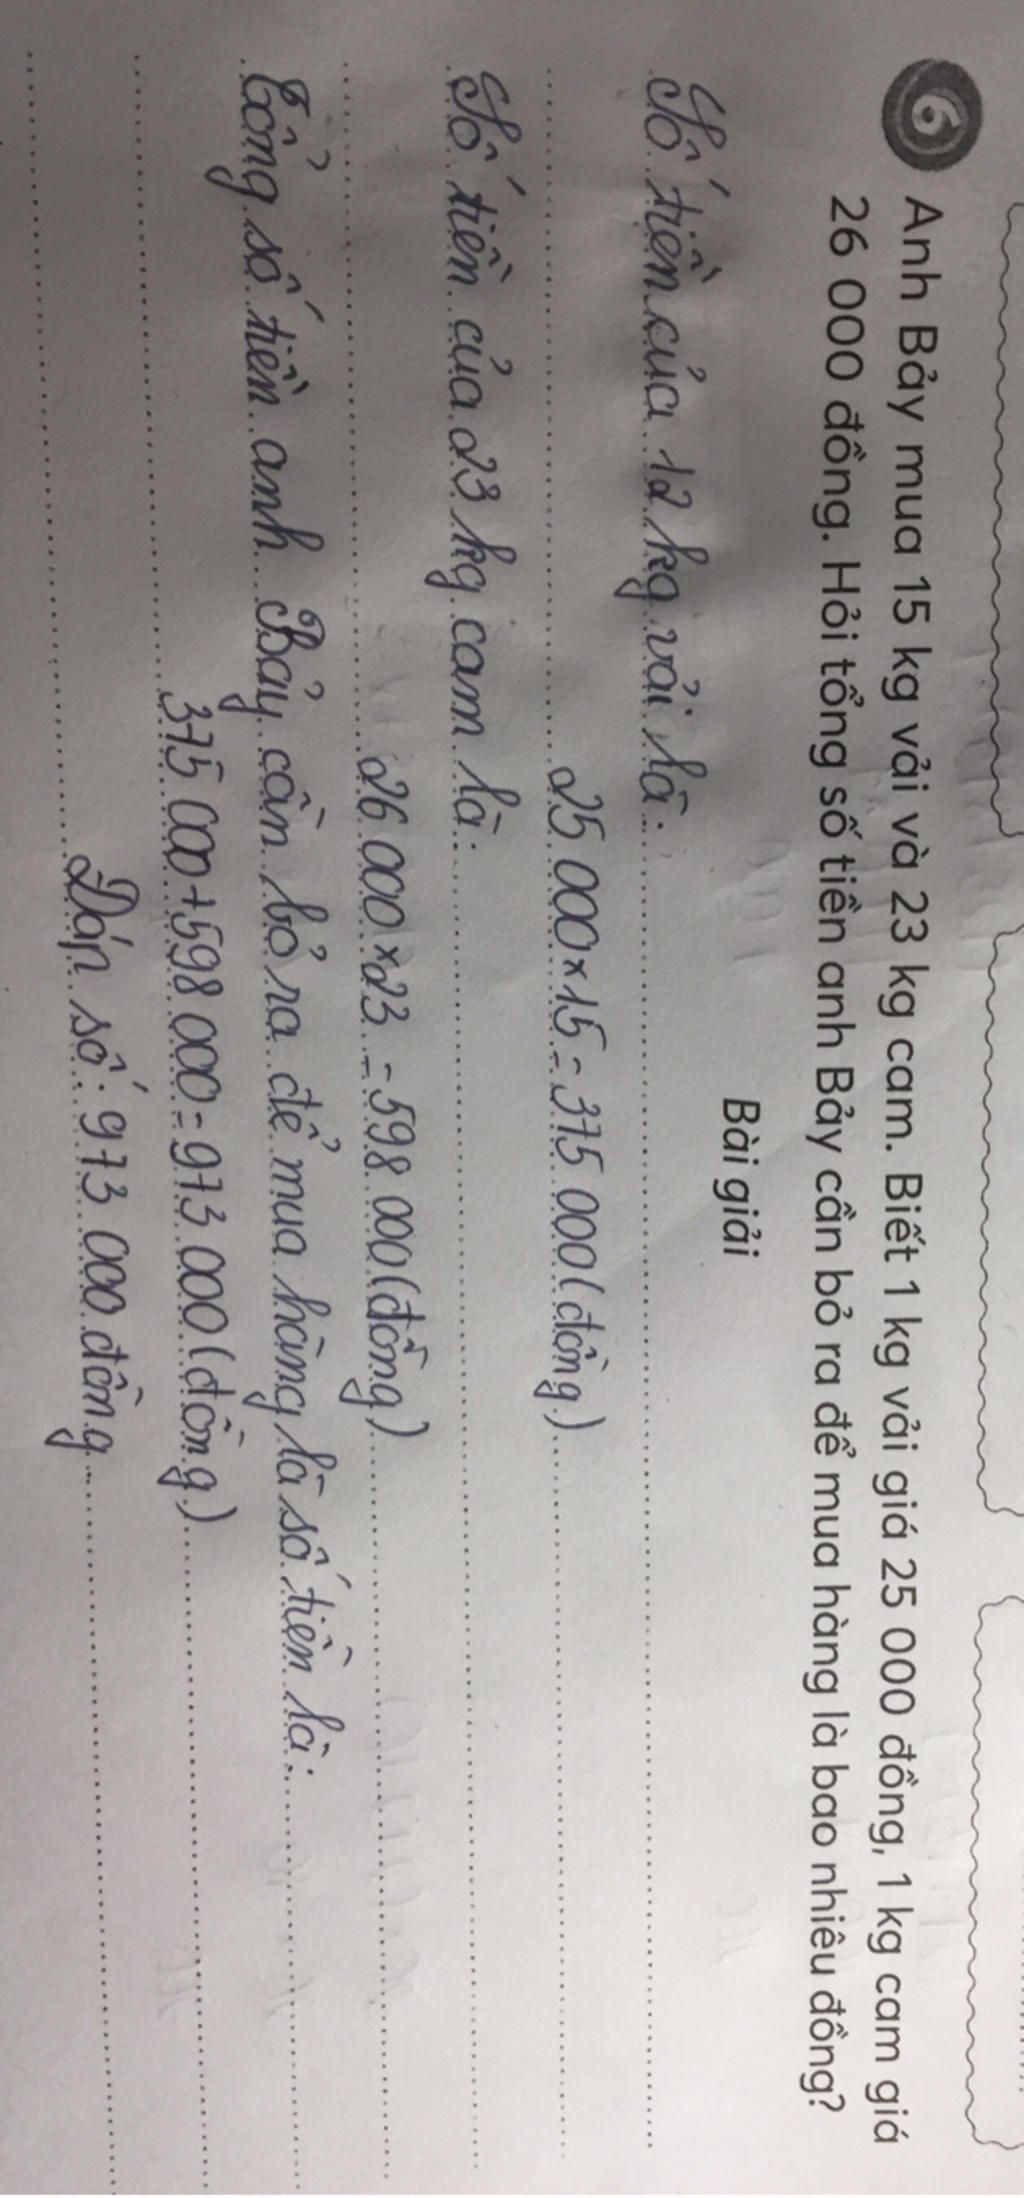 6 Anh Bảy mua 15 kg vải và 23 kg cam. Biết 1 kg vải giá 25 000 đồng, 1 kg cam giá
26 000 đồng. Hỏi tổng số tiền anh Bảy cần bỏ ra để mua hàng là bao nhiêu đồng?
Bài giải
Số tiền của 12 kg vải là:
25 000 × 15 = 375 000 (đồng)
Số tiền của 23 kg cam là:
26 000 × 23 = 598 000 (đồng)
Tổng số tiền anh Bảy cần bỏ ra để mua hàng là số tiền là:
375 000 + 598 000 = 973 000 (đồng)
Đáp số: 973 000 đồng